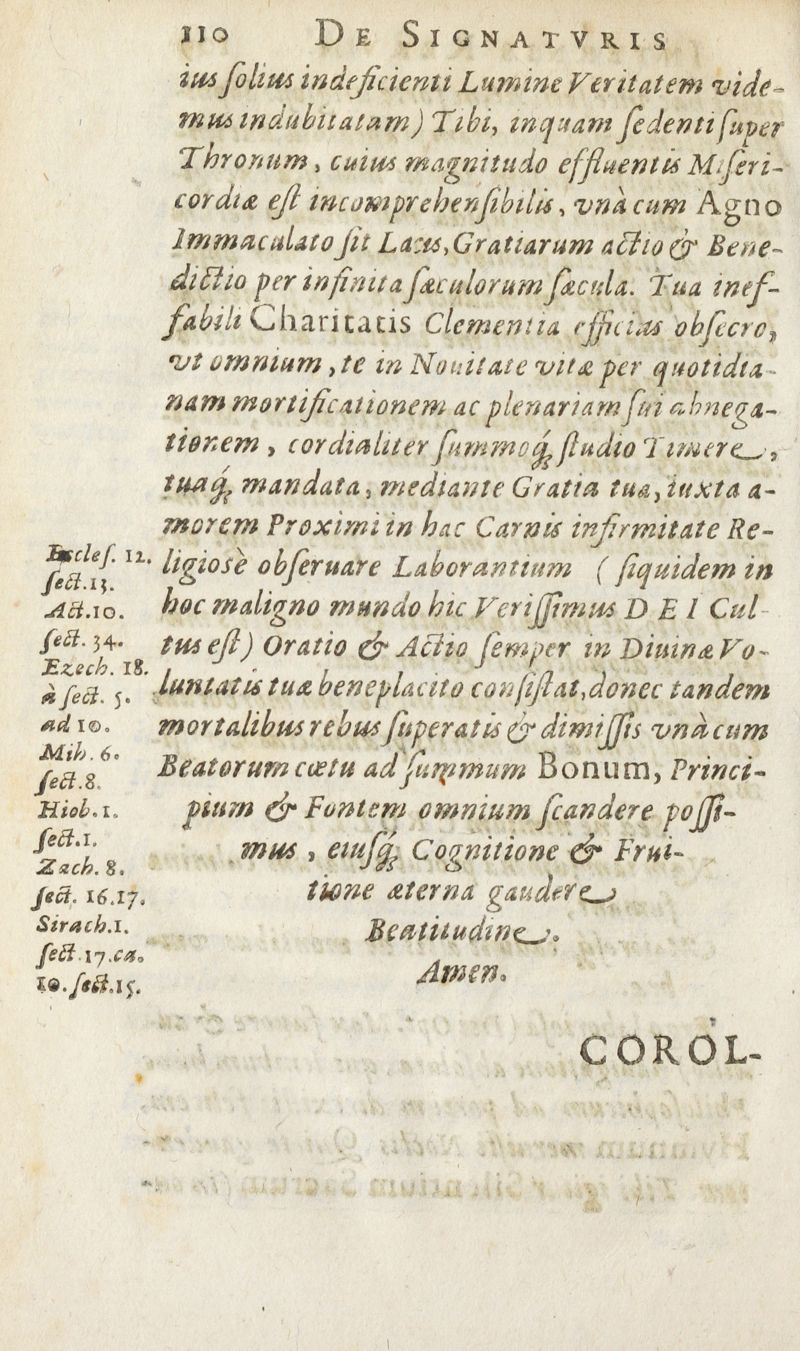 110 DE SIGNATVRIS
ius ſolius indeficienti Lumine Veritatem vide-
mus indubitatam) Tibi, inquam ſedenti ſuper
Thronum, cuius magnitudo effluentis Miſeri-
cordiæ eſt incomprehenſibilis, vnà cum Agno
Immaculato ſit Laus, Gratiarum actio & Bene-
dictio per infinita ſæculorum ſæcula. Tua inef-
fabili Charitatis Clementia efficias obſecro,
vt omnium, te in Nouitate vitæ per quotidia-
nam mortificationem ac plenariam ſui abnega-
tionem, cordialiter ſummoq́; ſtudio Timere,
tuaq́; mandata, mediante Gratia tua, iuxta a-
morem Proximi in hac Carnis infirmitate Re-
ligiosè obſeruare Laborantium (ſiquidem in
hoc maligno mundo hic Veriſſimus DEI Cul-
tus eſt) Oratio & Actio ſemper in Diuinæ Vo-
luntatis tuæ beneplacito conſiſtat, donec tandem
mortalibus rebus ſuperatis & dimiſſis vnà cum
Beatorum cœtu ad ſummum Bonum, Princi-
pium & Fontem omnium ſcandere poſſi-
mus, eiuſq́; Cognitione & Frui-
tione æterna gaudere
Beatitudine.
Amen.
Eccleſ. 12.
ſect. 13.
Act. 10.
ſect. 34.
Ezech. 18.
à ſect. 5.
ad 10.
Mih. 6.
ſect. 8.
Hiob. 1.
ſect. 1.
Zach. 8.
ſect. 16.17.
Sirach. 1.
ſect. 17. ca.
10. ſect. 15.
COROL-